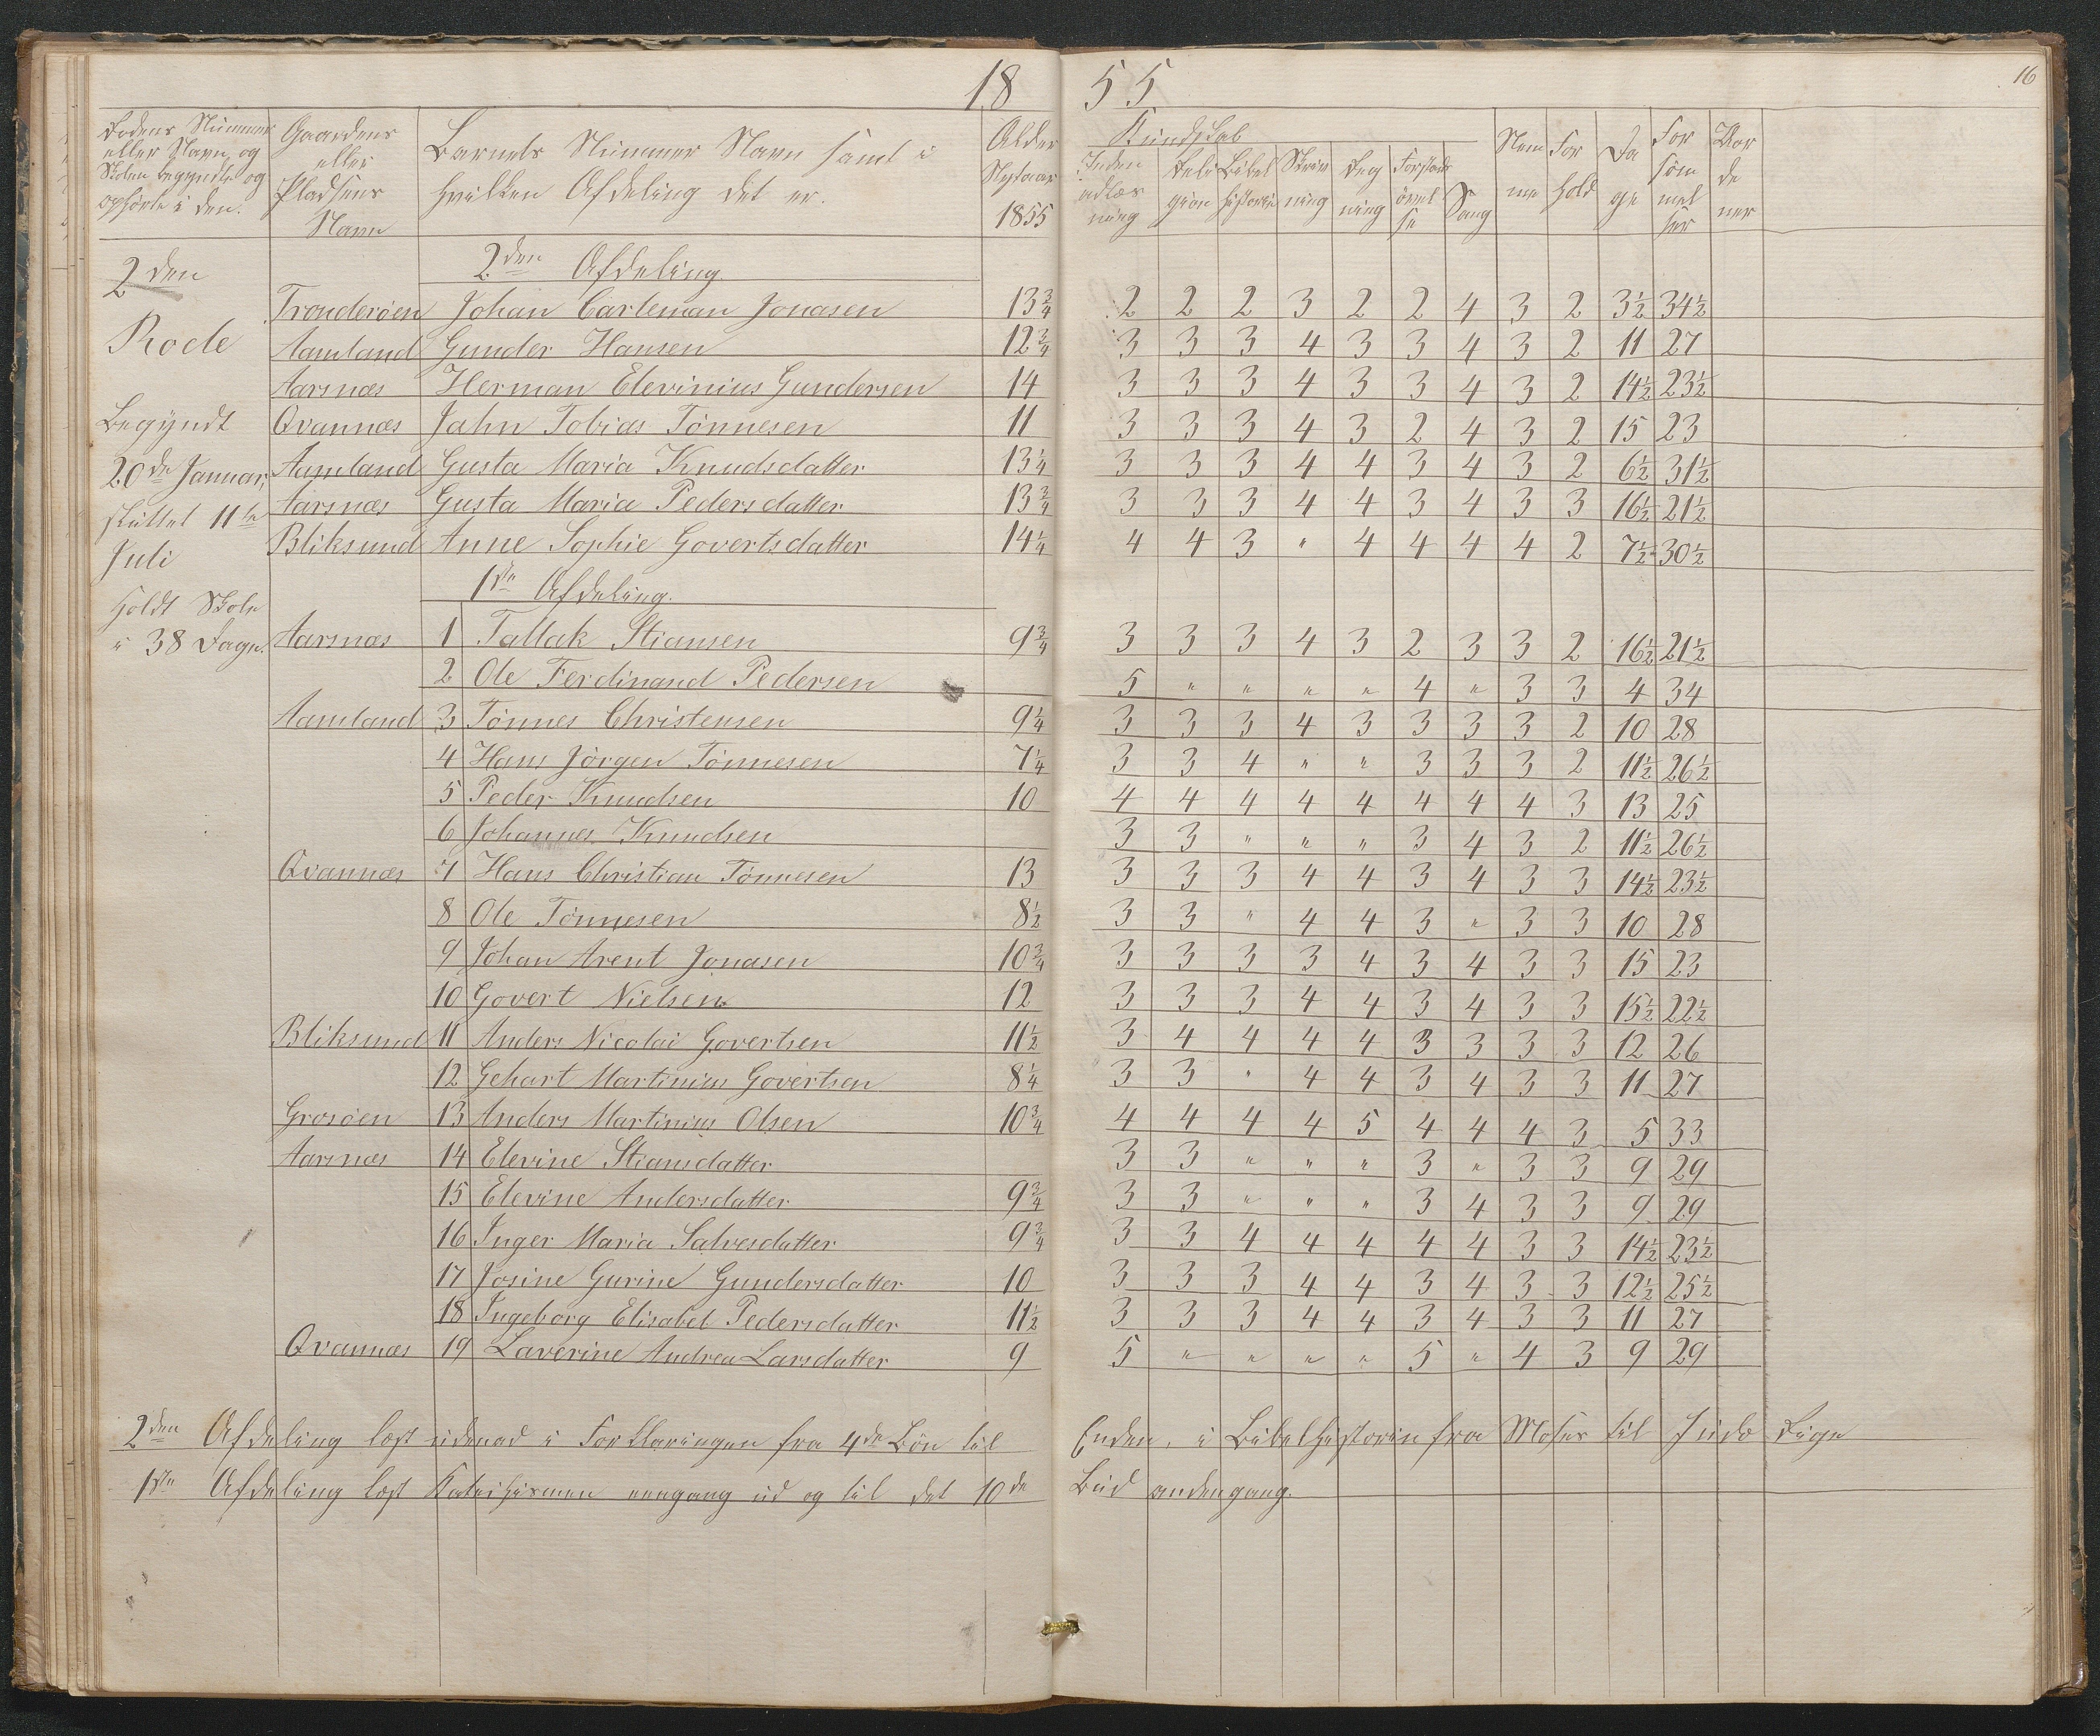 18 55
16
Rodens Nummer eller Navn og Skolen begyndte og ophörte i den.
Gaardens eller Pladsens Navn
Barnets Nummer Navn samt i hvilken Afdeling det er.
Alder Nytaar 1855
Kundskab
Inden adlæs ning
Reli gion
Bibel historie
Skriv ning
Reg ning
Forstands övel se
Sang
Nem me
For hold
Da ge
For söm mel ser
Vor de ner
2den Rode
Begyndt
20de Januar,
sluttet 11te
Juli
Holdt Skole
i 38 Dage.
2den Afdeling
Tronderöen Johan Carleman Jonasen 13 3/4 2 2 2 3 2 2 4 3 2 3 1/2 34 1/2
Aamland Gunder Hansen 12 3/4 3 3 3 4 3 3 4 3 2 11 27
Aarsnæs Herman Elevinius Gundersen 14 3 3 3 4 3 3 4 3 2 14 1/2 23 1/2
Qvannæs Jahn Tobias Tönnesen 11 3 3 3 4 3 2 4 3 2 15 23
Aamland Gusta Maria Knudsdatter 13 1/4 3 3 3 4 4 3 4 3 2 6 1/2 31 1/2
Aarsnæs Gusta Maria Pedersdatter 13 3/4 3 3 3 4 4 3 4 3 3 16 1/2 21 1/2
Bliksund Anne Sophie Govertsdatter 14 1/4 4 4 3 " 4 4 4 4 2 7 1/2 30 1/2
1ste Afdeling.
Aarsnæs 1 Tallak Stiansen 9 3/4 3 3 3 4 3 2 3 3 2 16 1/2 21 1/2
2 Ole Ferdinand Pedersen 5 " " " " 4 " 3 3 4 34
Aamland 3 Tönnes Christensen 9 1/4 3 3 3 4 3 3 3 3 2 10 28
4 Hans Jörgen Tönnesen 7 1/4 3 3 4 " " 3 3 3 2 11 1/2 26 1/2
5 Peder Knudsen 10 4 4 4 4 4 4 4 4 3 13 25
6 Johannes Knudsen 3 3 " " " 3 4 3 2 11 1/2 26 1/2
Qvannæs 7 Hans Christian Tönnesen 13 3 3 3 4 4 3 4 3 3 14 1/2 23 1/2
8 Ole Tönnesen 8 1/2 3 3 " 4 4 3 " 3 3 10 28
9 Johan Arent Jonasen 10 3/4 3 3 3 3 4 3 4 3 3 15 23
10 Govert Nielsen 12 3 3 3 4 4 3 4 3 3 15 1/2 22 1/2
Bliksund 11 Anders Nicolai Govertsen 11 1/2 3 4 4 4 4 3 3 3 3 12 26
12 Gehart Martinius Govertsen 8 1/4 3 3 " 4 4 3 4 3 3 11 27
Grosöen 13 Anders Martinius Olsen 10 3/4 4 4 4 4 5 4 4 4 3 5 33
Aarsnæs 14 Elevine Stiansdatter 3 3 " " " 3 " 3 3 9 29
15 Elevine Andersdatter 9 3/4 3 3 " " " 3 4 3 3 9 29
16 Inger Maria Salvesdatter 9 3/4 3 3 4 4 4 4 4 3 3 14 1/2 23 1/2
17 Josine Gurine Gundersdatter 10 3 3 3 4 4 3 4 3 3 12 1/2 25 1/2
18 Ingeborg Elisabet Pedersdatter 11 1/2 3 3 3 4 4 3 4 3 3 11 27
Qvannæs 19 Laverine Andrea Larsdatter 9 5 " " " " 5 " 4 3 9 29
2den Afdeling læst udenad i Forklaringen fra 4de Bön til Enden, i Bibelhistorien fra Moses til Juda Rige
1ste Afdeling læst Katechismen eengang ud og til det 10de Bud andengang.